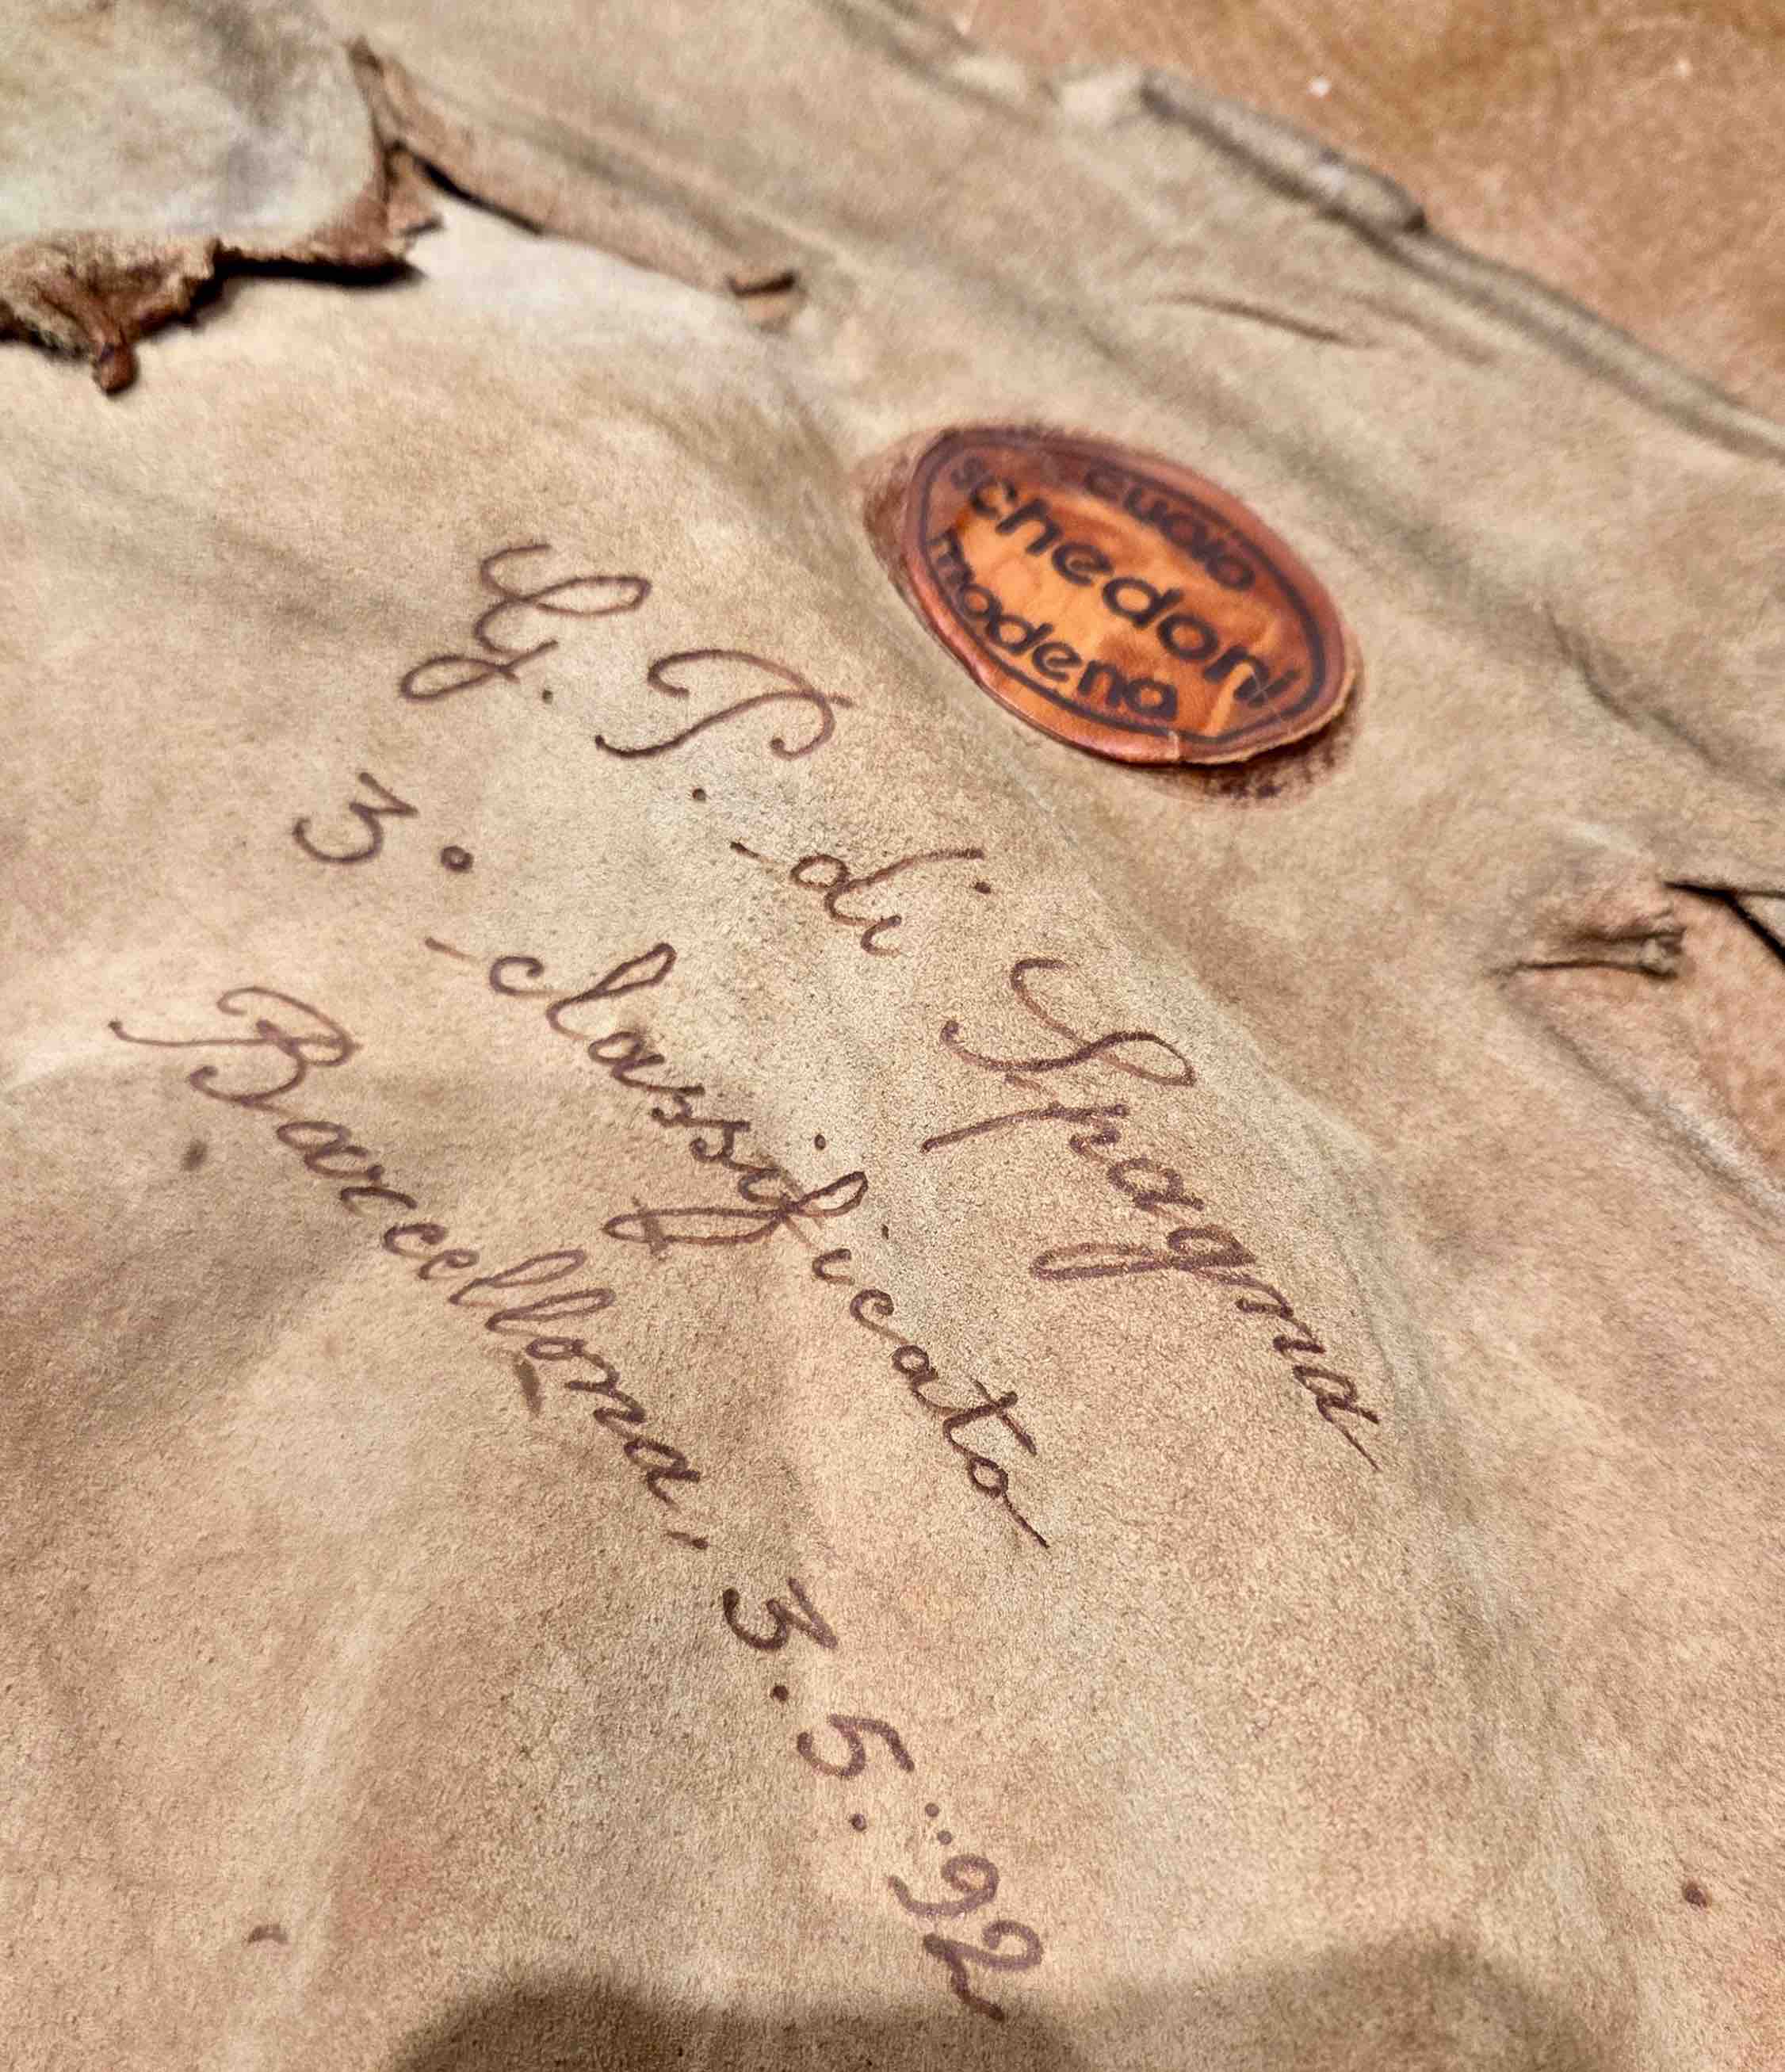 cuoio
schedoni
modena
G.P. di Spagna
3° classificato
Barcellona, 3.5.92